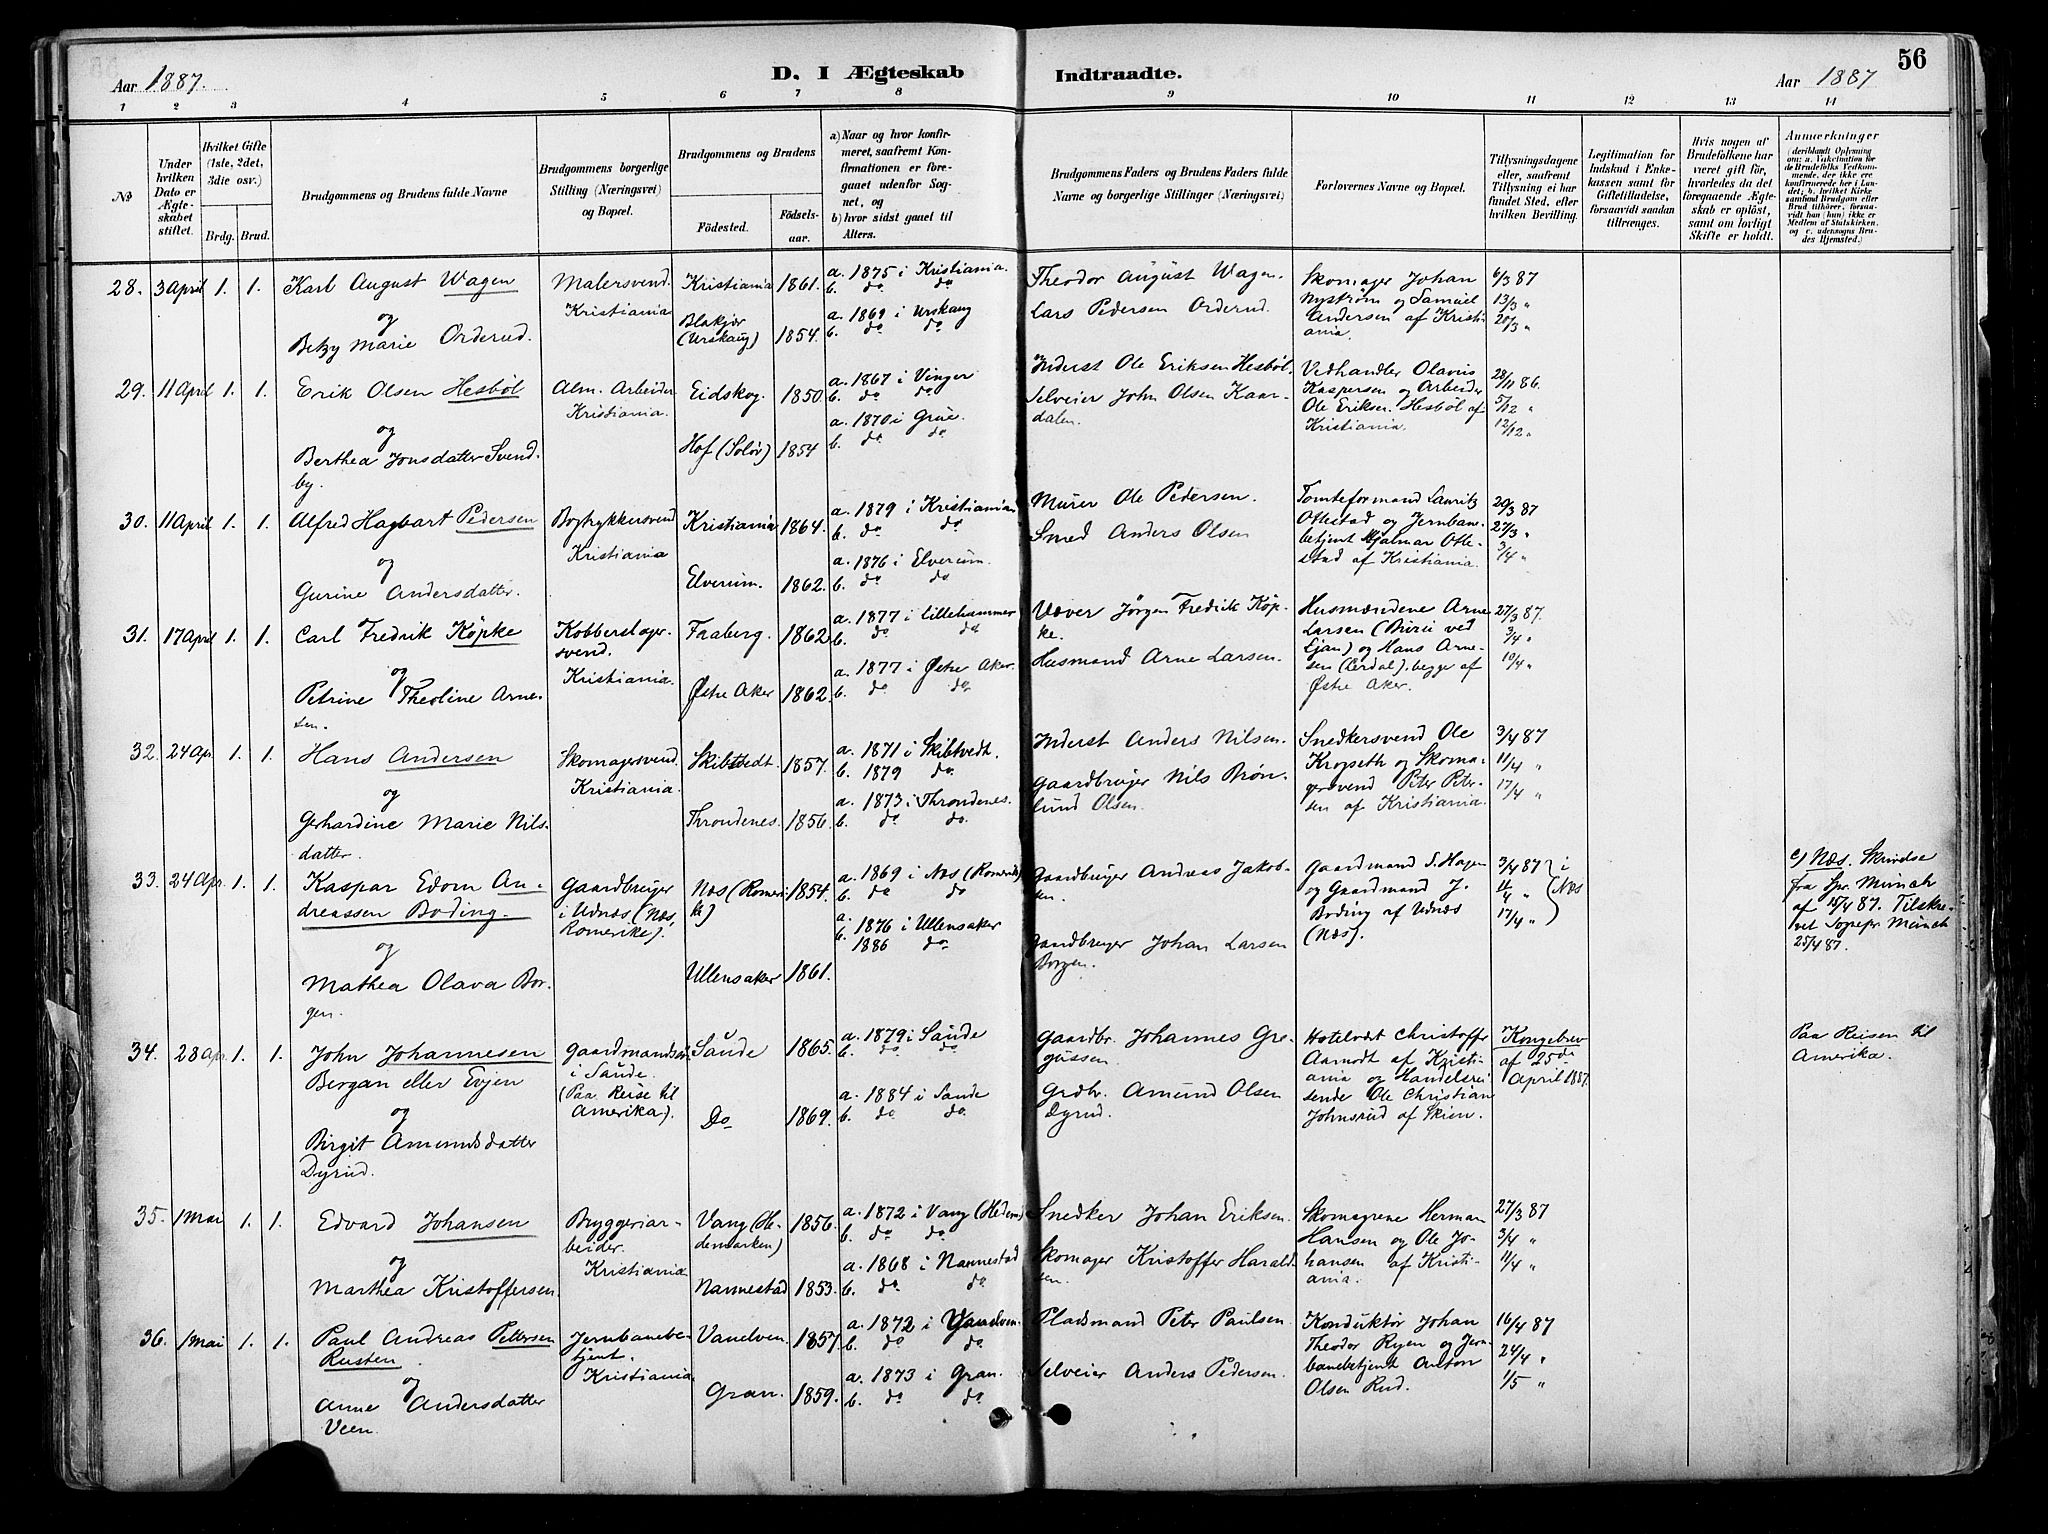 56
Aar 1887.
D. I Ægteskab Indtraadte.
Aar 1887
1 2 3 4 5 6 7 8 9 10 11 12 13 14
No
Under hvilken Dato er Ægteskabet stiftet.
Hvilket Gifte (1ste, 2det, 3die osv.)
Brdg. Brud.
Brudgommens og Brudens fulde Navne
Brudgommens borgerlige Stilling (Næringsvei) og Bopæl.
Brudgommens og Brudens
Födested. Födsels-aar.
a) Naar og hvor konfirmeret, saafremt Konfirmationen er foregaaet udenfor Sognet, og
b) hvor sidst gaaet til Alters.
Brudgommens Faders og Brudens Faders fulde Navne og borgerlige Stillinger (Næringsvei)
Forlovernes Navne og Bopæl.
Tillysningsdagene eller, saafremt Tillysning ei har fundet Sted, efter hvilken Bevilling.
Legitimation for Indskud i Enkekassen samt for Giftetilladelse, forsaavidt saadan tiltrænges.
Hvis nogen af Brudefolkene har været gift för, hvorledes da det foregaaende Ægteskab er oplöst, samt om lovligt Skifte er holdt.
Anmærkninger (deriblandt Oplysning om: a. Vakcination for de Brudefolks Vedkommende, der ikke ere konfirmerede her i Landet; b. hvilket Kirkesamfund Brudgom eller Brud tilhörer, forsaavidt han (hun) ikke er Medlem af Statskirken, og c. udensogns Brudes Hjemsted.)
28. 3 April 1. 1. Karl August Wagen
og
Betzy Marie Orderud.
Malersvend.
Kristiania
Kristiania 1861.
Blakjør (Urskaug) 1854.
a. 1875 i Kristiania.
b. do do
a. 1869 i Urskaug
b. do do
Theodor August Wagen.
Lars Pedersen Orderud.
Skomager Johan
Nystrøm og Samuel
Andersen af Kristi-
ania.
6/3 87
13/3 "
20/3 "
29. 11 April 1. 1. Erik Olsen Hesböl
og
Berthea Jonsdatter Svend-
by.
Alm. Arbeider
Kristiania.
Eidskog. 1850.
Hof (Solör) 1854
a. 1867 i Vinger
b. do do
a. 1870 i Grue.
b. do do
Inderst Ole Eriksen Hesböl.
Selveier John Olsen Kaar-
dalen.
Vedhandler Olavus
Kaspersen og Arbeider
Ole Eriksen Hesböl af
Kristiania.
28/11 86.
5/12 "
12/12 "
30. 11 April 1. 1. Alfred Hagbart Pedersen
og
Gurine Andersdatter.
Bogtrykkersvend
Kristiania
Kristiania 1864.
Elverum. 1862.
a. 1879 i Kristiania
b. do do
a. 1876 i Elverum.
b. do do
Murer Ole Pedersen.
Smed Anders Olsen
Tomteformand Lauritz
Ottestad og Jernban-
betjent Hjalmar Otte-
stad af Kristiania.
20/3 87
27/3 "
3/4 "
31. 17 April 1. 1. Carl Fredrik Köpke
og
Petrine Theoline Arne-
sen.
Kobberslager-
svend.
Kristiania.
Faaberg. 1862
Østre Aker 1862.
a. 1877 i Lillehammer
b. do do
a. 1877 i Østre Aker.
b. do do
Væver Jörgen Fredrik Köp-
ke.
Husmand Arne Larsen.
Husmændene Arne
Larsen (Burie ved
Ljan) og Hans Arne-
sen (Ærdal), begge af
Østre Aker.
27/3 87.
3/4 "
10/4 "
32. 24 Apr. 1. 1. Hans Andersen
og
Gerhardine Marie Nils-
datter.
Skomagersvend.
Kristiania.
Skibtvedt. 1857.
Throndenes. 1856.
a. 1871 i Skibtvedt.
b. 1879 do.
a. 1873 i Throndenes.
b. do do.
Inderst Anders Nilsen.
Gaardbruger Nils Brön-
lund Olsen.
Snedkersvend Ole
Kropseth og Skoma-
gersvend Peter Peter-
sen af Kristiania.
3/4 87
11/4 "
17/4 "
33. 24 Apr. 1. 1. Kaspar Edom An-
dreassen Boding.
og
Mathea Olava Bor-
gen.
Gaardbruger
i Udnæs (Næs,
Romerike).
Næs (Romeri-
ke) 1854.
Ullensaker 1861.
a. 1869 i Næs (Romerike)
b. do do
a. 1876 i Ullensaker
b. 1886 do.
Gaardbruger Andreas Jakob-
sen.
Gaardbruger Johan Larsen
Borgen.
Gaardmand S. Hagen
og Gaardmand J.
Boding af Udnæs
(Næs).
3/4 87
11/4 "
17/4 "
i Næs
c) Næs. Skrivelse
fra Spr. Münch
af 15/4 87. Tilskre-
vet Sognepr. Münch
25/4 87.
34. 28 Apr. 1. 1. John Johannesen
Bergan eller Evjen
og
Birgit Amundsdatter
Dyrud.
Gaardmandsön
i Saude.
(Paa Reise til
Amerika).
Saude 1865.
Do 1869.
a. 1879 i Saude
b. do do
a. 1884 i Saude
b. do do.
Gaardbr. Johannes Gre-
gussen.
Grdbr. Amund Olsen
Dyrud.
Hotelvært Christoffer
Aamodt af Kristi-
ania og Handelsrei-
sende Ole Christian
Johnsrud af Skien.
Kongebrev
af 25de
April 1887.
Paa Reisen til
Amerika.
35. 1 Mai 1. 1. Edvard Johansen
og
Marthea Kristoffersen.
Bryggeriar-
beider.
Kristiania
Vang (He-
demarken) 1856.
Nannestad 1853.
a. 1872 i Vang (Hedem)
b. do do
a. 1868 i Nannestad
b. do do.
Snedker Johan Eriksen.
Skomager Kristoffer Harald-
sen.
Skomagrene Herman
Hansen og Ole Jo-
hansen af Kristi-
ania.
27/3 87
3/4 "
11/4 "
36. 1 Mai 1. 1. Paul Andreas Pettersen
Rusten.
og
Anne Andersdatter
Veen.
Jernbanebe-
tjent.
Kristiania
Vanelven 1857.
Gran. 1859.
a. 1872 i Vanelven
b. do do.
a. 1873 i Gran.
b. do do.
Pladsmand Peter Paulsen.
Selveier Anders Pedersen.
Konduktør Johan
Theodor Ryen og Jern-
banebetjent Anton
Olsen Rud.
16/4 87
24/4 "
1/5 "